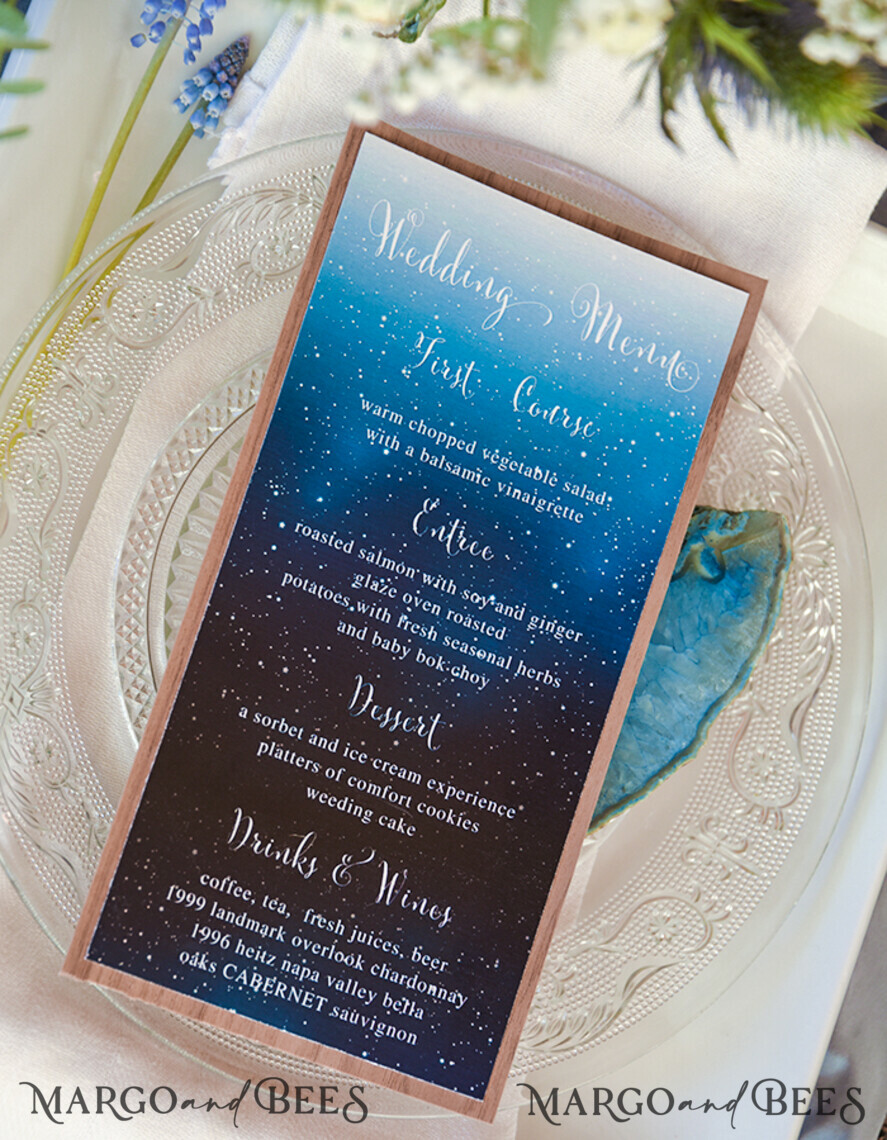 Wedding Menu
First Course
warm chopped vegetable salad
with a balsamic vinaigrette
Entree
roasted salmon with soy and ginger
glaze oven roasted
potatoes with fresh seasonal herbs
and baby bok choy
Dessert
a sorbet and ice cream experience
platters of comfort cookies
weeding cake
Drinks & Wines
coffee, tea, fresh juices, beer
1999 landmark overlook chardonnay
1996 heitz napa valley bella
oaks CABERNET sauvignon
MARGO and BEES
MARGO and BEES